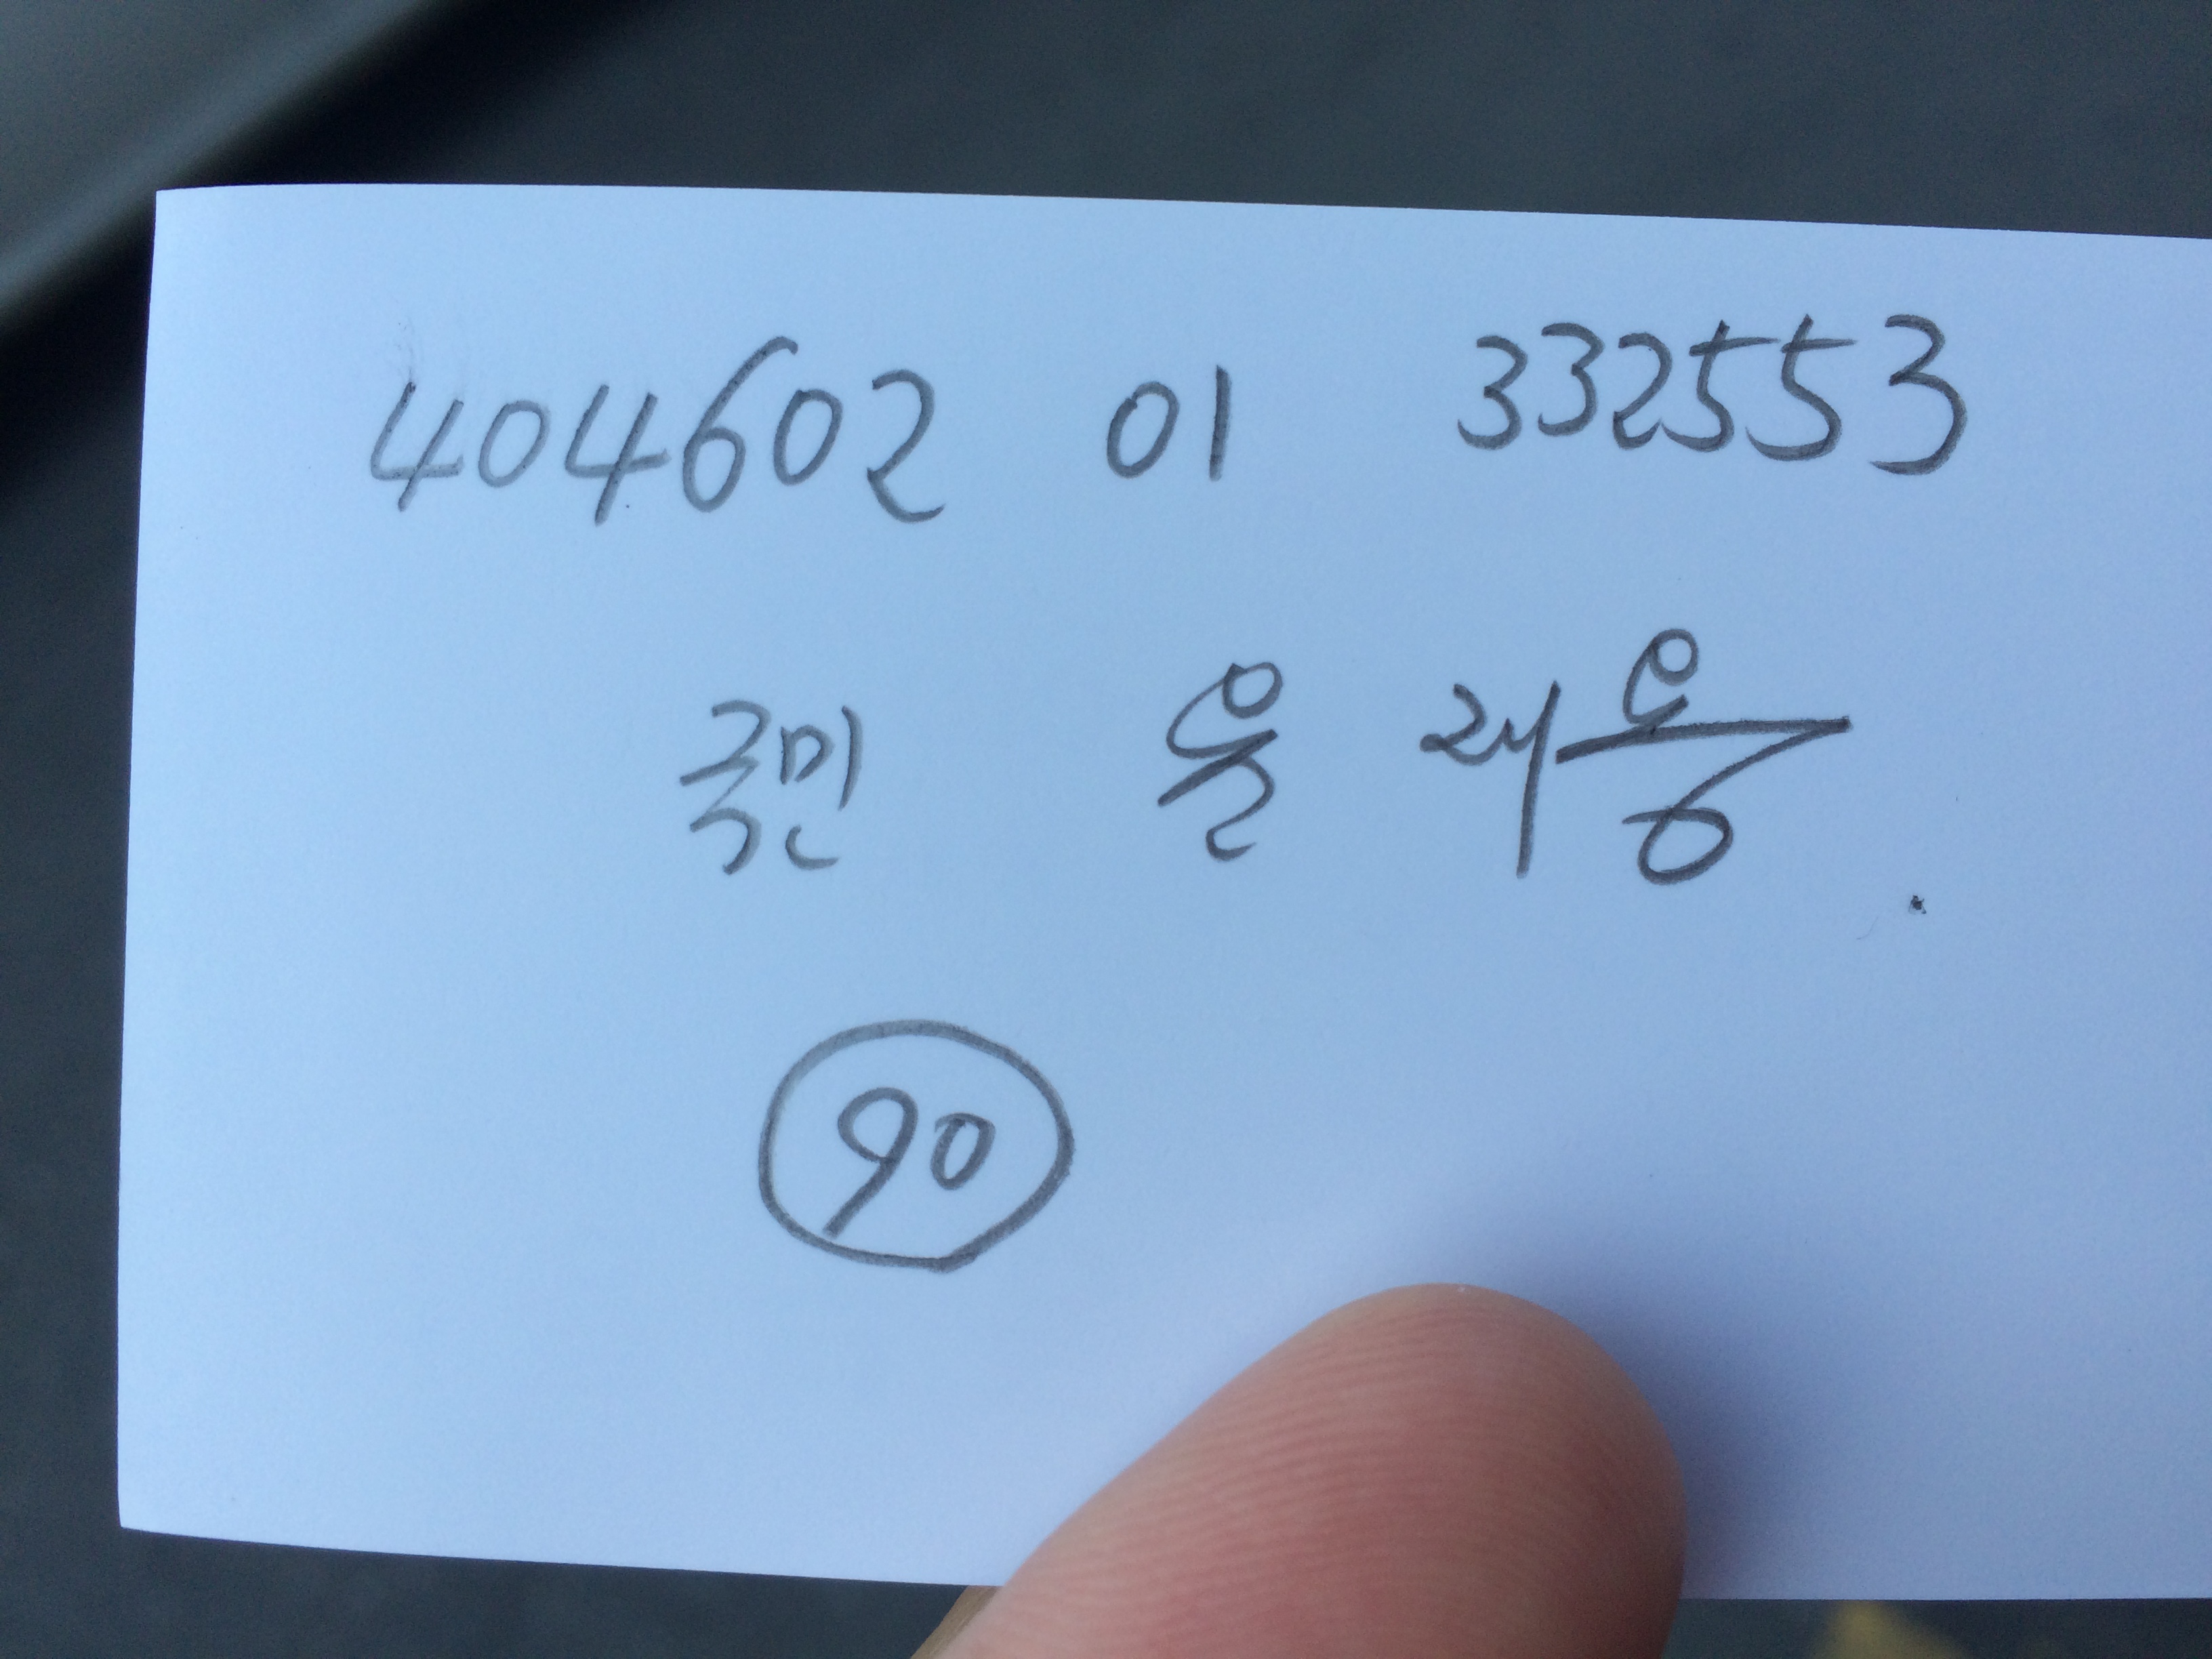 404602 01 332553
국민 윤재웅
90